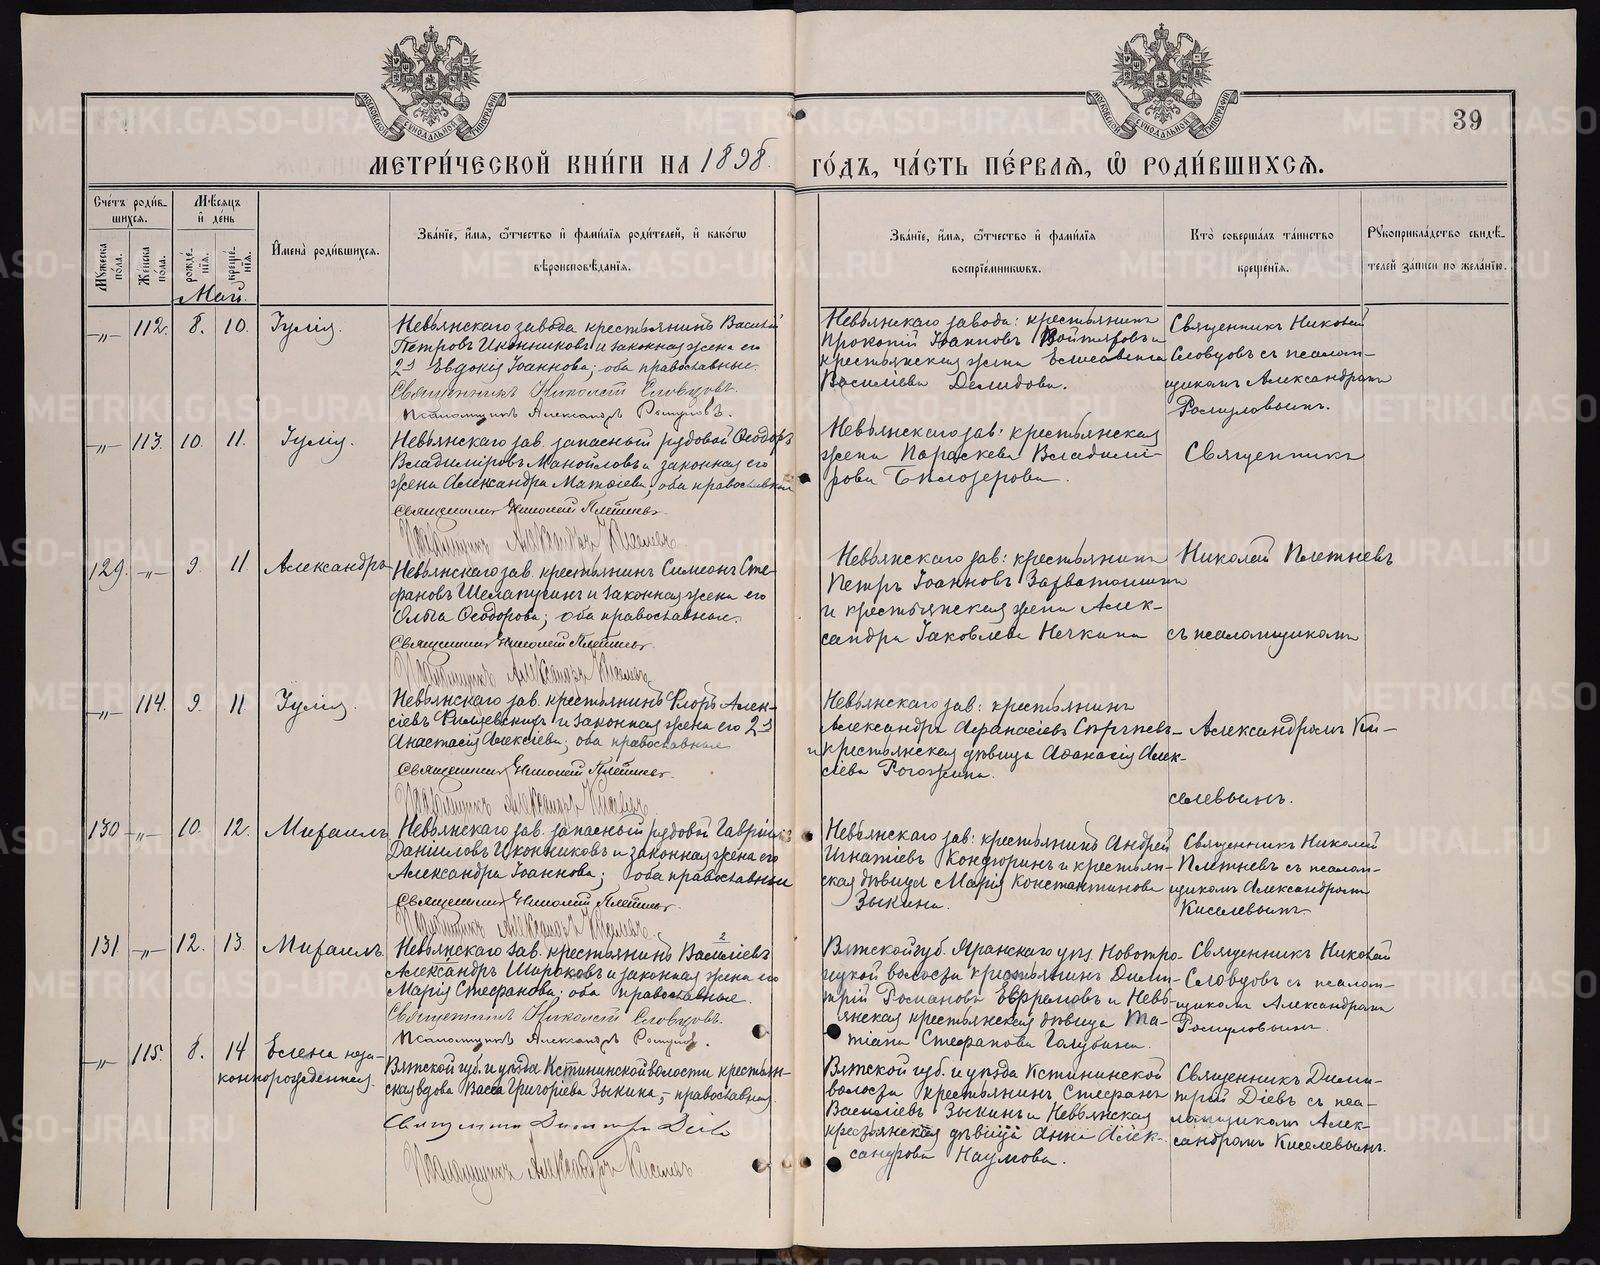 39
МЕТРИ́ЧЕСКОЙ КНИ́ГИ НА 1898. ГО́ДЪ, ЧА́СТЬ ПЕ́РВАѦ, Ѿ РОДИ́ВШИХСѦ.
Сче́тъ роди́в-
шихсѧ.
Мѣ́сѧцъ
и҆ де́нь
Мꙋ́жеска по́ла.
Же́нска по́ла.
рожде́-
нїѧ.
креще́-
нїѧ.
И҆мена̀ роди́вшихсѧ.
Зва́нїе, и҆́мѧ, ѻ҆́тчество и҆ фами́лїѧ роди́телей, и҆ како́гѡ
вѣроисповѣ́данїѧ.
Зва́нїе, и҆́мѧ, ѻ҆́тчество и҆ фами́лїѧ
воспрїе́мникѡвъ.
Кто̀ соверша́лъ та́инство
креще́нїѧ.
Рꙋкоприкла́дство свидѣ́-
телей за́писи по жела́нїю.
Май.
-„- 112. 8. 10. Іулія.
Невьянскаго завода крестьянинъ Василій
Петровъ Иконниковъ и законная жена его
2 э Евдокія Іоаннова; оба православные.
Священникъ Николай Словцовъ.
Псаломщикъ Александръ Ромуловъ.
Невьянскаго завода: крестьянинъ
Прокопій Іоанновъ и
крестьянская жена Елисавета
Василіева Демидова.
Священникъ Николай
Словцовъ съ псалом-
щикомъ Александромъ
Ромуловымъ.
-„- 113. 10. 11. Іулія.
Невьянскаго зав. запасный рядовой Ѳеодоръ
Владиміровъ Манойловъ и законная его
жена Александра Матѳіева; оба православные
Священникъ Николай Плетневъ.
Псаломщикъ Александръ Киселевъ
Невьянскаго зав: крестьянская
жена Параскева Владимі-
рова Бѣлозерова.
Священникъ
129. -„- 9. 11. Александръ
Невьянскаго зав. крестьянинъ Симеонъ Сте-
фановъ Шелапугинъ и законная жена его
Ольга Ѳеодорова; оба православные.
Священникъ Николай Плетневъ.
Псаломщикъ Александръ Киселевъ
Невьянскаго зав: крестьянинъ
Петръ Іоанновъ Захваташинъ
и крестьянская жена Алек-
сандра Іаковлева Нечкина
Николай Плетневъ
съ псаломщикомъ
-„- 114. 9. 11. Іулія.
Невьянскаго зав. крестьянинъ Флоръ Алек-
сіевъ и законная жена его 2 э
Анастасія Алексіева; оба православные
Священникъ Николай Плетневъ.
Псаломщикъ Александръ Киселевъ
Невьянскаго зав: крестьянинъ
Александръ Аѳанасіевъ
и крестьянская дѣвица Аѳанасія Алек-
сіева Рогожина.
Александромъ Ки-
селевымъ.
130 -„- 10. 12. Михаилъ
Невьянскаго зав. запасный рядовой Гавріилъ
Данииловъ Иконниковъ и законная жена его
Александра Іоаннова; оба православные
Священникъ Николай Плетневъ.
Псаломщикъ Александръ Киселевъ.
Невьянскаго зав: крестьянинъ Андрей
Игнатіевъ Кондюринъ и крестьян-
ская дѣвица Марія Константинова
Зыкина.
Священникъ Николай
Плетневъ съ псалом-
щикомъ Александромъ
Киселевымъ
131 -„- 12. 13. Михаилъ.
2
Невьянскаго зав. крестьянинъ Василіевъ
Александръ Широковъ и законная жена его
Марія Стефанова; оба православные.
Священникъ Николай Словцовъ.
Псаломщикъ Александръ Ромуловъ.
Вятской губ. Яранскаго уѣз. Новотро-
ицкой волости крестьянинъ Дими-
трій Романовъ Ефремовъ и Невь-
янская крестьянская дѣвица Та-
тіана Стефанова Голубина.
Священникъ Николай
Словцовъ съ псалом-
щикомъ Александромъ
Ромуловымъ.
-„- 115. 8. 14 Елена неза-
коннорожденная.
Вятской губ. и уѣзда Кстининской волости крестьян-
ская вдова Васса Григоріева Зыкина, - православная.
Священникъ Димитрій Діевъ
Псаломщикъ Александръ Киселевъ
Вятской губ. и уѣзда Кстининской
волости крестьянинъ Стефанъ
Василіевъ Зыкинъ и Невьянская
крестьянская дѣвица Анна Алек-
сандрова Наумова.
Священникъ Дими-
трій Діевъ съ пса-
ломщикомъ Алек-
сандромъ Киселевымъ.
METRIKI.GASO-URAL.RU